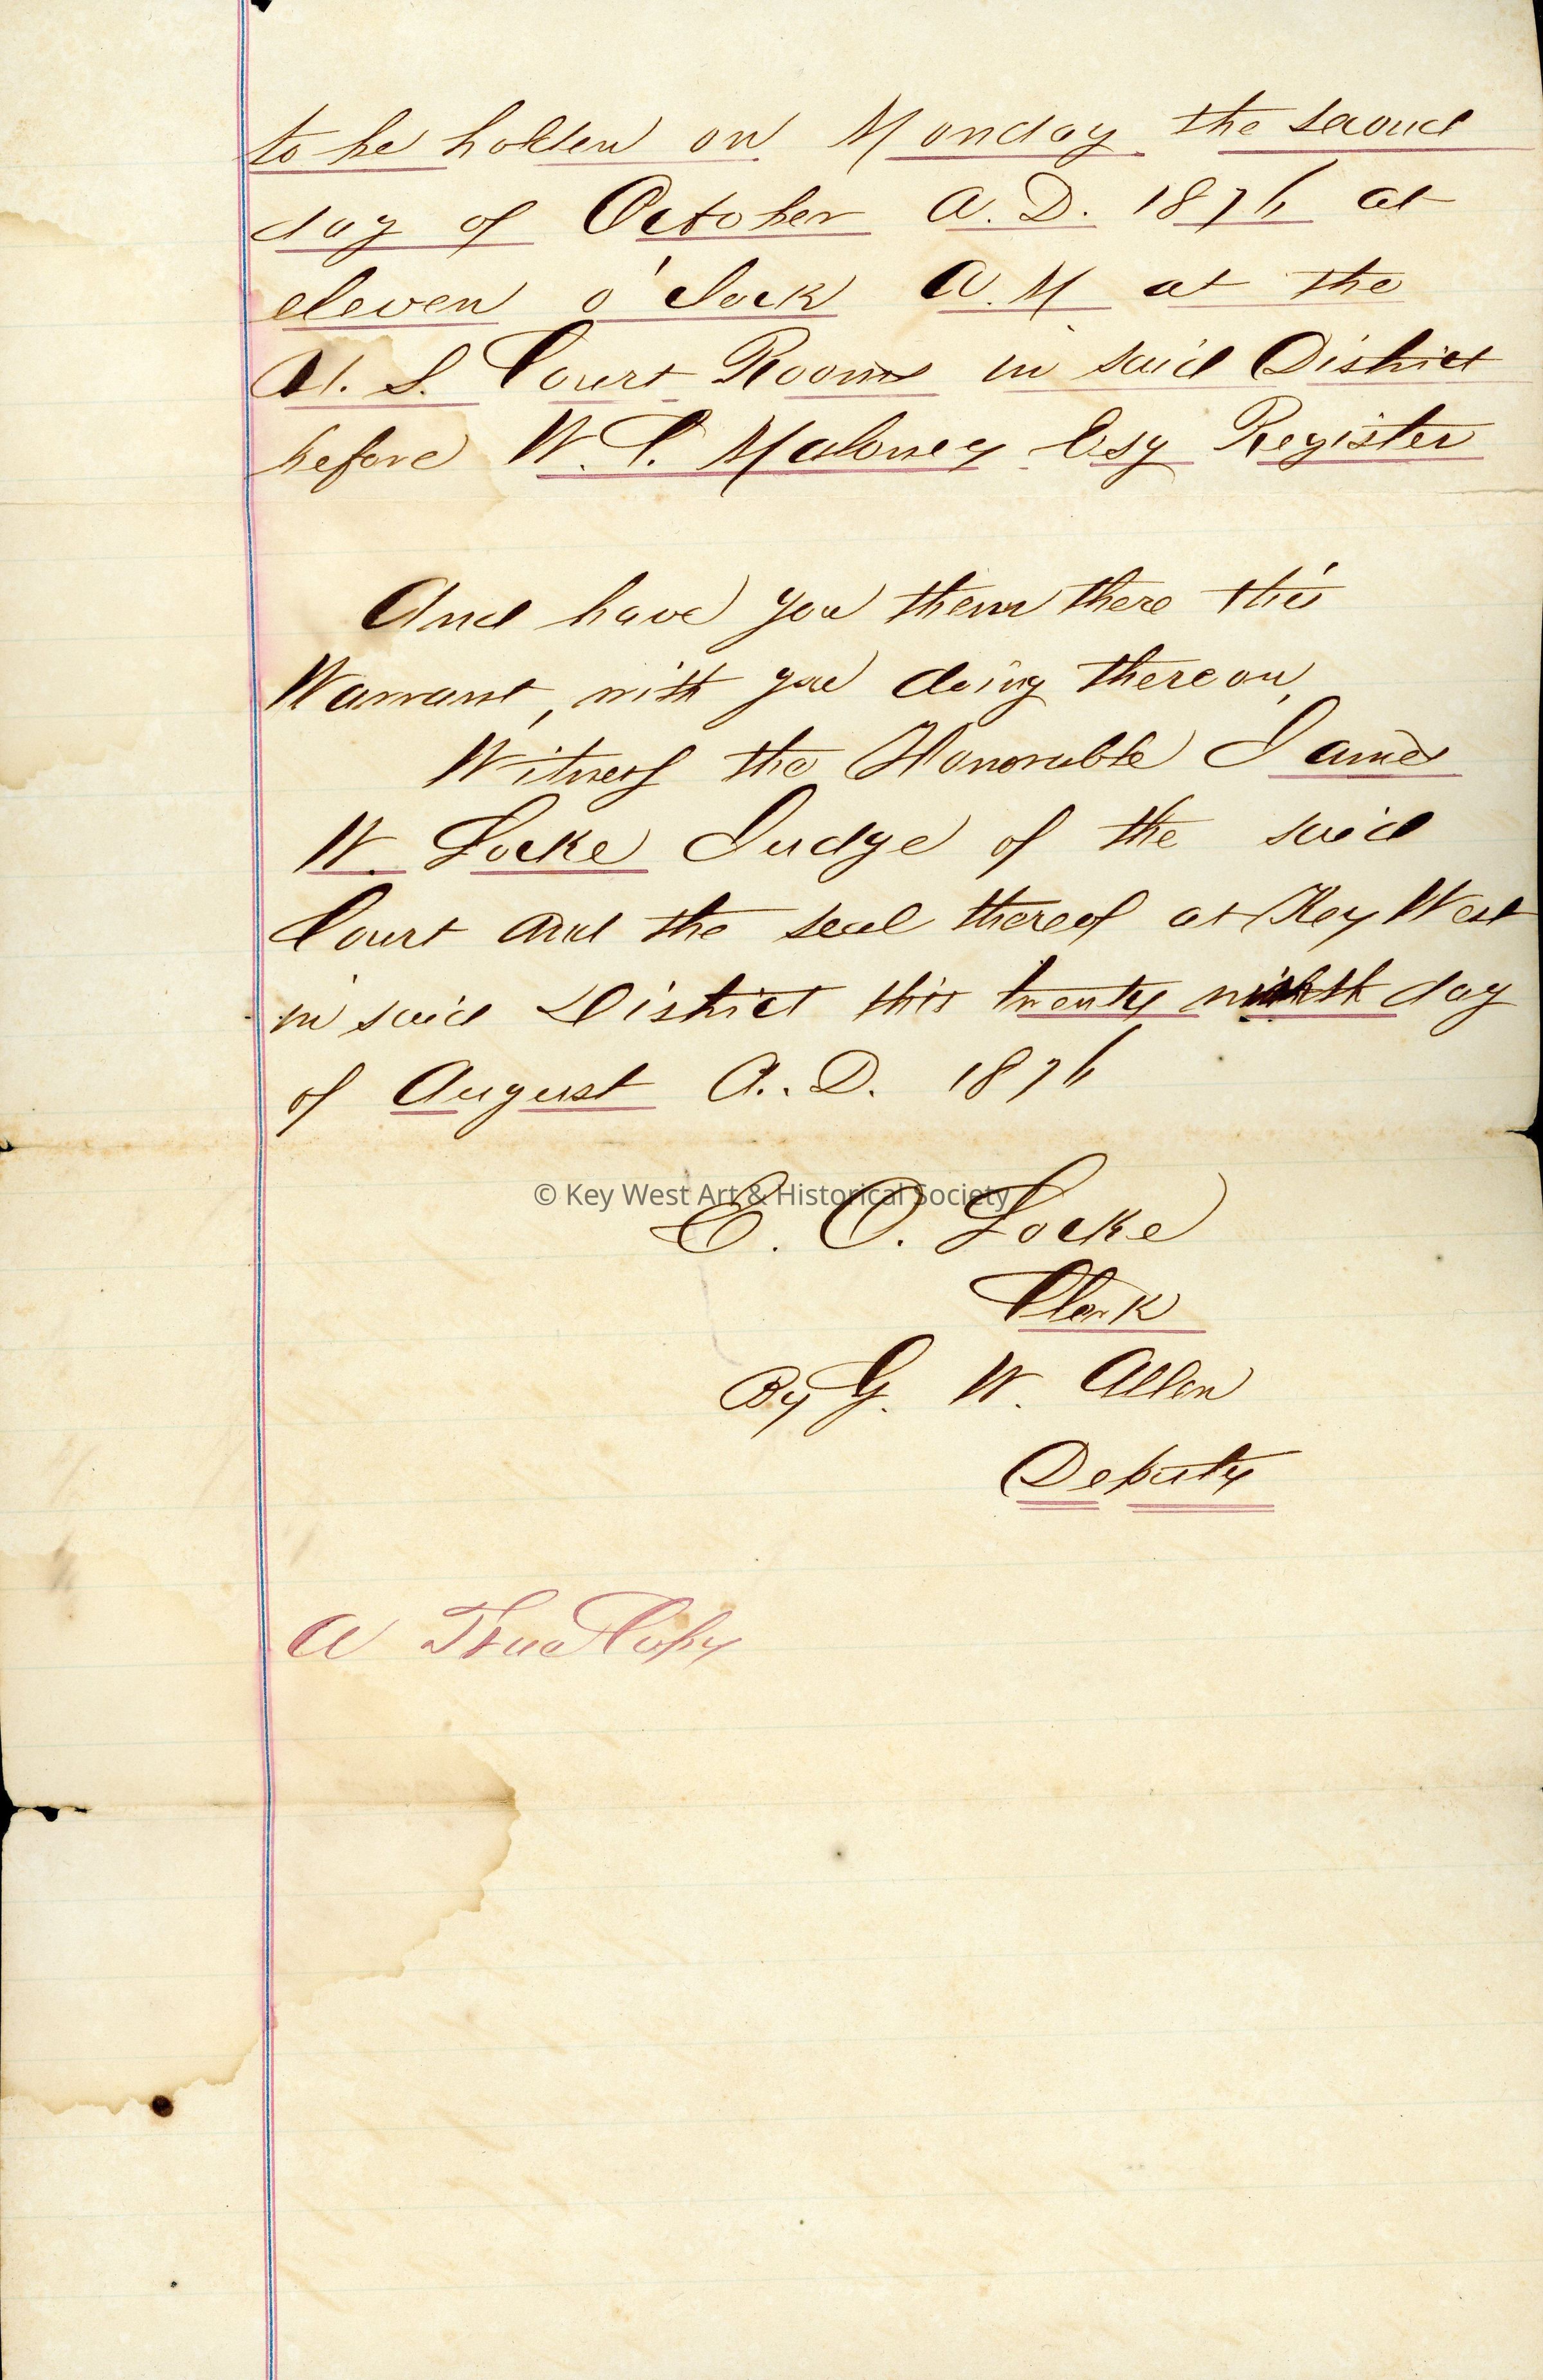 to be holden on Monday the second
day of October A.D. 1876 at
eleven o'clock A.M at the
U.S. Court Rooms in said District
before W.C. Maloney Esq Register
And have you them there this
Warrant, with you doing thereon,
Witness the Honorable James
W. Locke Judge of the said
Court and the seal thereof at Key West
in said District this twenty ninth day
of August A.D. 1876
© Key West Art & Historical Society
E. O. Locke
Clerk
By G. W. Allen
Deputy
A True Copy